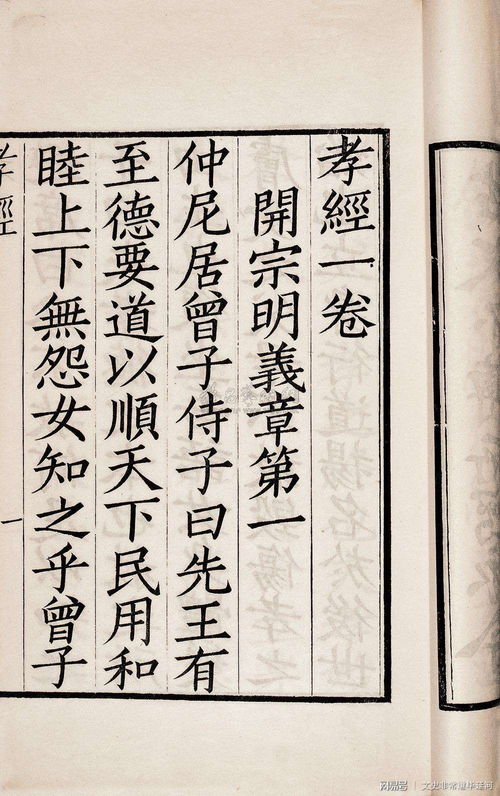 孝經一卷
開宗明義章第一
仲尼居曾子侍子曰先王有
至德要道以順天下民用和
睦上下無怨女知之乎曾子
孝經
一
网易号 | 文史非常道毕延河